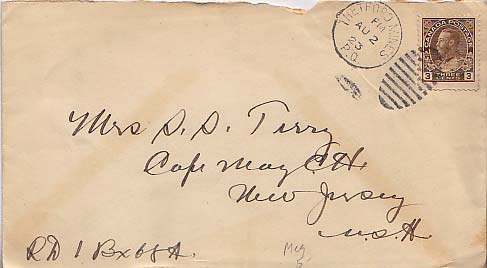 THETFORD MINES
PM
AU 2
23
P.Q.
CANADA POSTAGE
3 THREE CENTS 3
Mrs S. S. Terry
Cape May C.H.
New Jersey
U.S.A.
RD 1 Bx 65A.